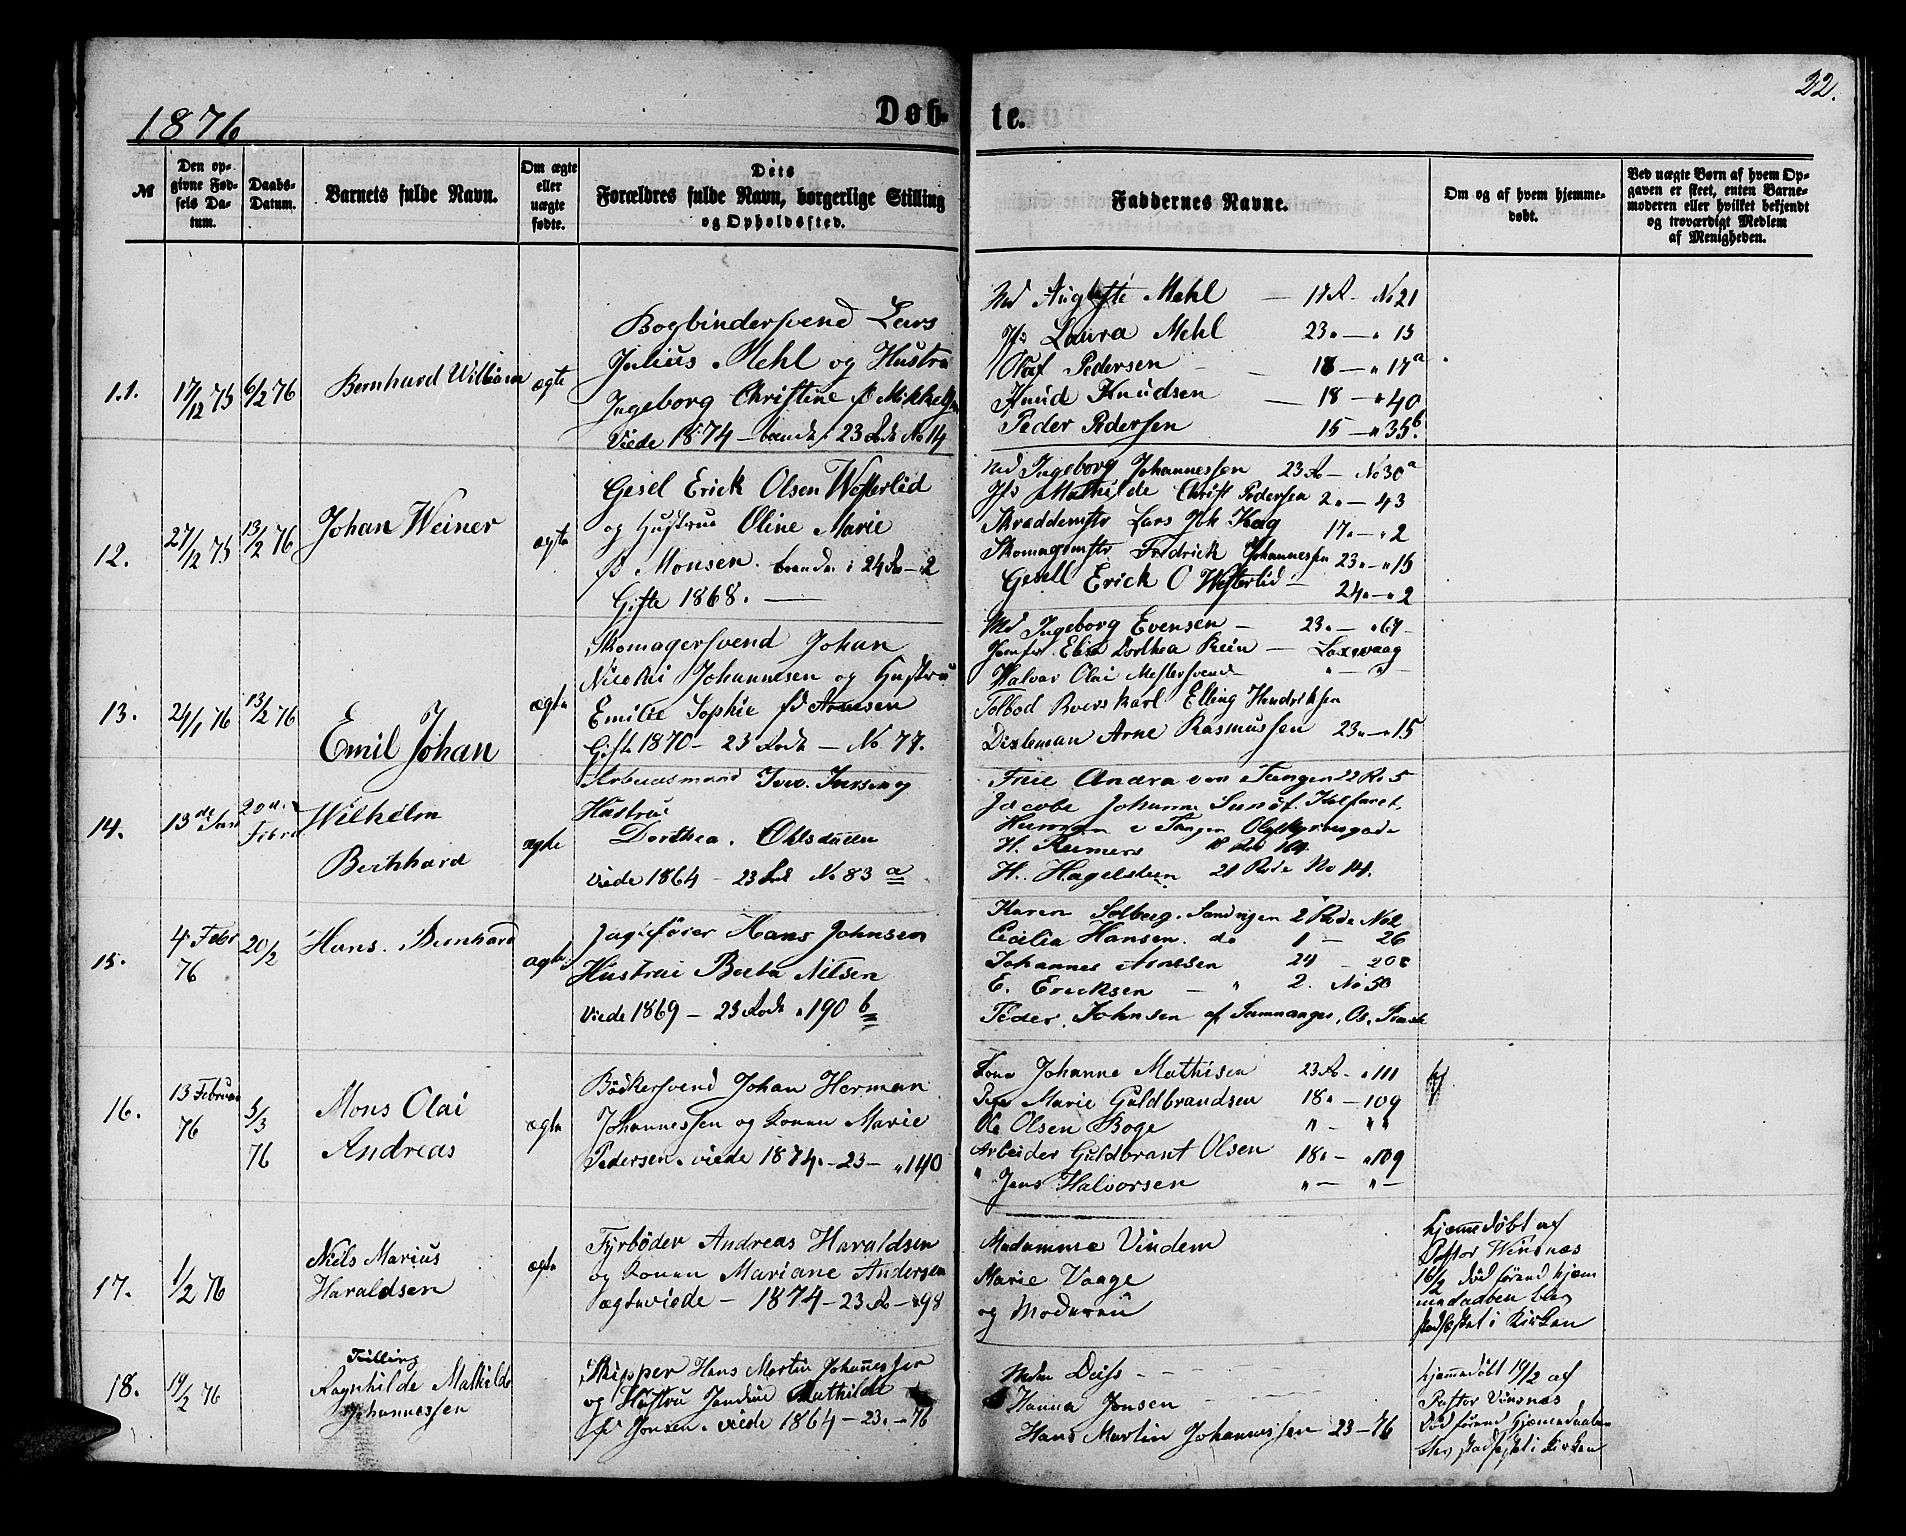 1876
Døb-
te.
22.
№
Den op-
givne Fød-
sels Da-
tum.
Daabs-
Datum.
Barnets fulde Navn.
Om ægte
eller
uægte
fødte.
Dets
Forældres fulde Navn, borgerlige Stilling
og Opholdssted.
Faddernes Navne.
Om og af hvem hjemme-
døbt.
Ved uægte Børn af hvem Op-
gaven er skeet, enten Barne-
moderen eller hvilket bekjendt
og troværdigt Medlem
af Menigheden.
11.
17/12 75
6/2 76
Bernhard William
ægte
Bogbindersvend Lars
Julius Mehl og Hustru
Ingeborg Christine f Mikkelsen
Viede 1874 – 23 Rode No 14
Md Auguste Mehl — No 21
Jfr Laura Mehl 23 " 15
Olaf Pedersen — " 17a
Knud Knudsen — 18 — " 40
Peder Pedersen 15 — " 35b
12.
27/12 75
13/2 76
Johan Weiner
ægte
Gesel Erick Olsen Westerlid
og Hustrue Oline Marie
f. Monsen. i 24 Ro – 2
Gifte 1868. —
Md Ingeborg Johannessen 23 R — No 30a
Jfr Mathilde Christ Pedersen 2 " — 43
Skræddemstr Lars Joh Hag 17 " — " 2
Skomagemstr Fredrick Johannessen 23 " — " 15
Gesell Erick O Westerlid — 24 " — " 2
13.
24/1 76
13/2 76
Emil Johan
ægte
Skomagersvend Johan
Nicolai Johannesen og Hustru
Emilie Sophie fd Arnesen
Gift 1870 – 23 Rode – No 77.
Md Ingeborg Evensen — 23 " — " 67
Jomfr Elise Dorthea Rein — Laxevaag
Halvor Olai Mestersvend " — " —
Tolbod Roerskarl Elling Hendriksen
Arne Rasmussen 23 " — " 15
14.
13de Jan
20de Febru
Wilhelm
Bernhard
ægte
Arbeidsmand Iver Iversen og
Hustrue
Dorthea. Ohlsdatter
Viede 1864 – 23 Rode No 83 a
Andra von Tangen 22 Ro 5
Jacobe Johanne Sundt. Kalfaret.
Herman v Tangen
H. Reimers 18 Rode
H. Hagelsteen 21 Rode No 14.
15.
4 Febr
76
20/2
Hans. Bernhard
ægte
Hans Johnsen
Hustrue Berta Nilsen
Viede 1869 – 23 Rode " 190 b
Karen Solberg. Sandvigen 2 Rode No 2
Cecilia Hansen. do 1 — 26
Johannes 24 — 20
E. Ericksen — " 2. No 50
Peder. Johnsen af Samnanger, Os.
16.
13 Februar
76
5/3
76
Mons Olai
Andreas
ægte
Bødkersvend Johan Herman
Johannessen og Konen Marie
Pedersen. viede 1874. – 23 – " 140
Kone Johanne Mathisen 23 R — " 111
Pige Marie Guldbrandsen 18 " — 109
Ole Olsen Boge " — " "
Arbeider Guldbrant Olsen 18 " — " 109
" Jens Halvorsen " — " —
17.
1/2 76
Niels Marius
Haraldsen
ægte
Fyrbøder Andreas Haraldsen
og Konen Mariane Andersen
ægteviede – 1874 – 23 R – " 98
Madamme Vindem
Marie Vaage
og Moderen
hjemmedøbt af
Pastor Winsnæs
16/2 død førend hjem
medaaben blev
stadfæstet i Kirken
18.
19/2 76
Tvilling
Ragnhilde Mathilde
Johannessen
Skipper Hans Martin Johannessen
og Hustru Jandine Mathilde
fd Jonsen. viede 1864 – 23 " – 76
Mdm Deiss – –
Hanna Jonsen
Hans Martin Johannessen 23 – 76
hjemmedøbt 19/2 af
Pastor Vinsnæs
Død førend hjemmedaaben
blev stadfæstet i Kirken